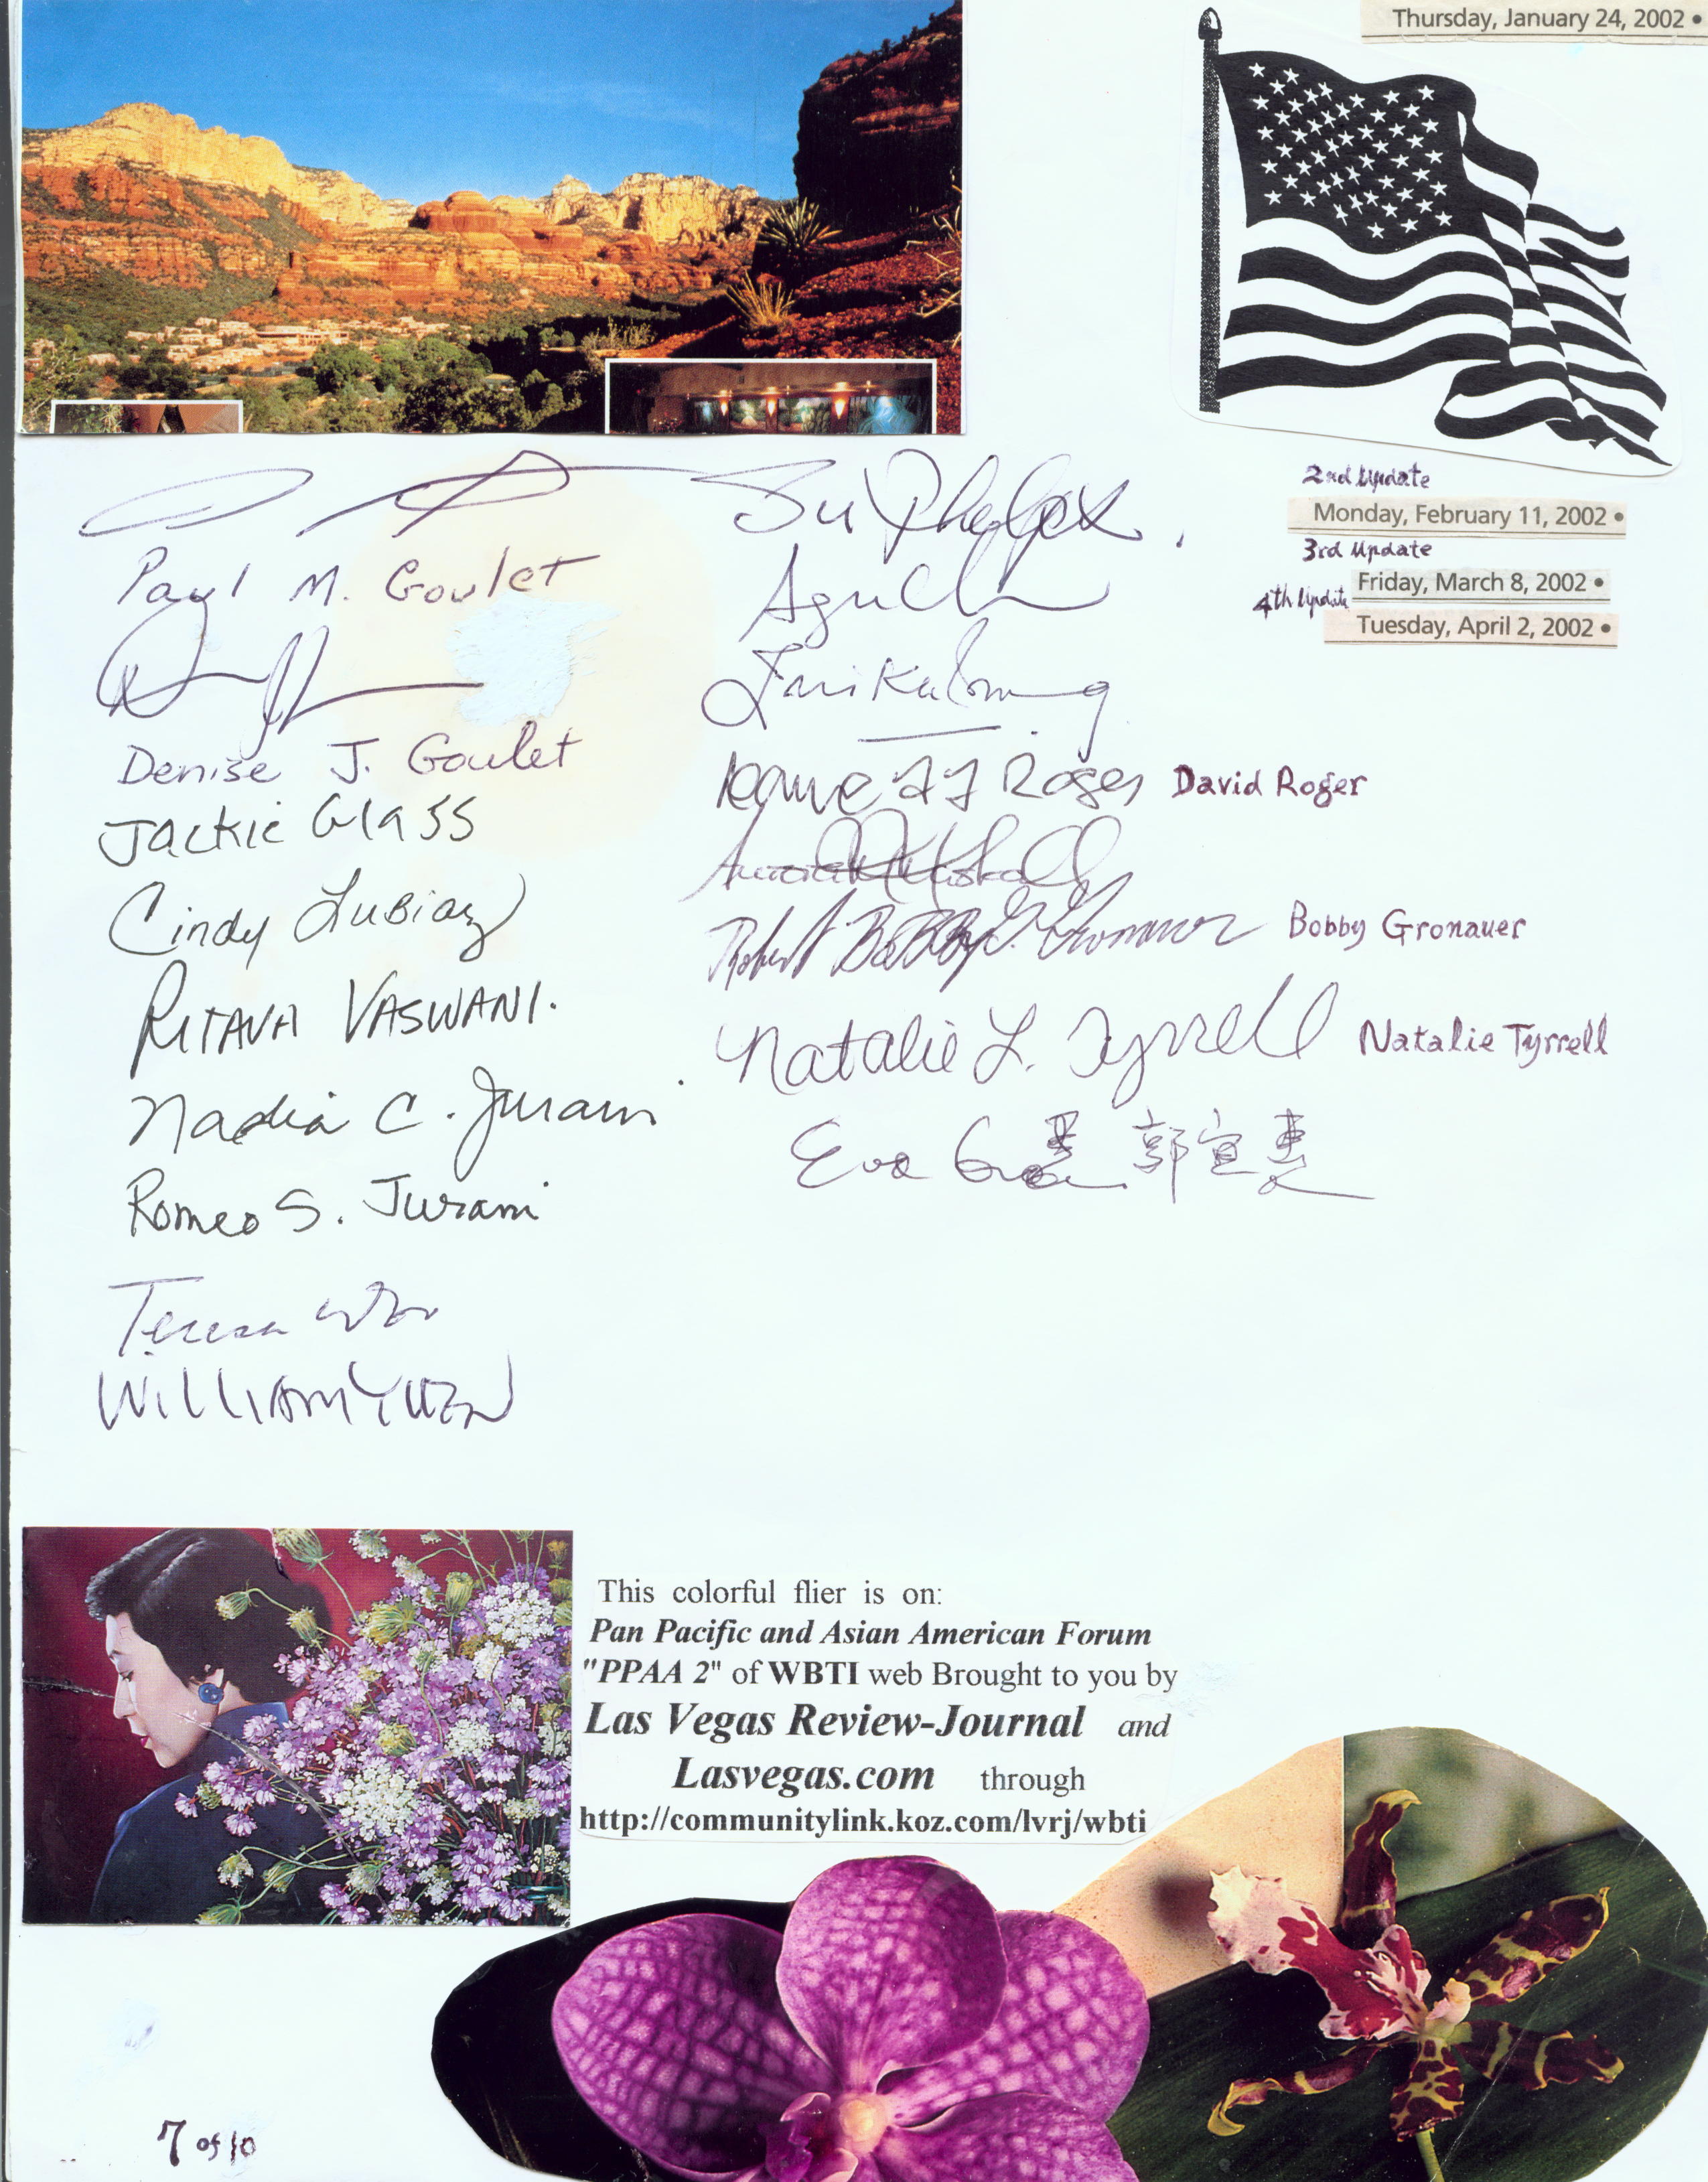 Thursday, January 24, 2002 •
2nd Update
Monday, February 11, 2002 •
3rd Update
Friday, March 8, 2002 •
4th Update
Tuesday, April 2, 2002 •
Paul M. Goulet
Denise J. Goulet
Jackie Glass
Cindy Lubiaz
RITAVA VASWANI.
Nadia C. Jurani
Romeo S. Jurani
Teresa
WILLIAM YUEN
Roger David Roger
Robert Bobby G. Gronauer Bobby Gronauer
Natalie L. Tyrrell Natalie Tyrrell
Eva 郭宣
This colorful flier is on:
Pan Pacific and Asian American Forum
"PPAA 2" of WBTI web Brought to you by
Las Vegas Review-Journal and
Lasvegas.com through
http://communitylink.koz.com/lvrj/wbti
7 of 10